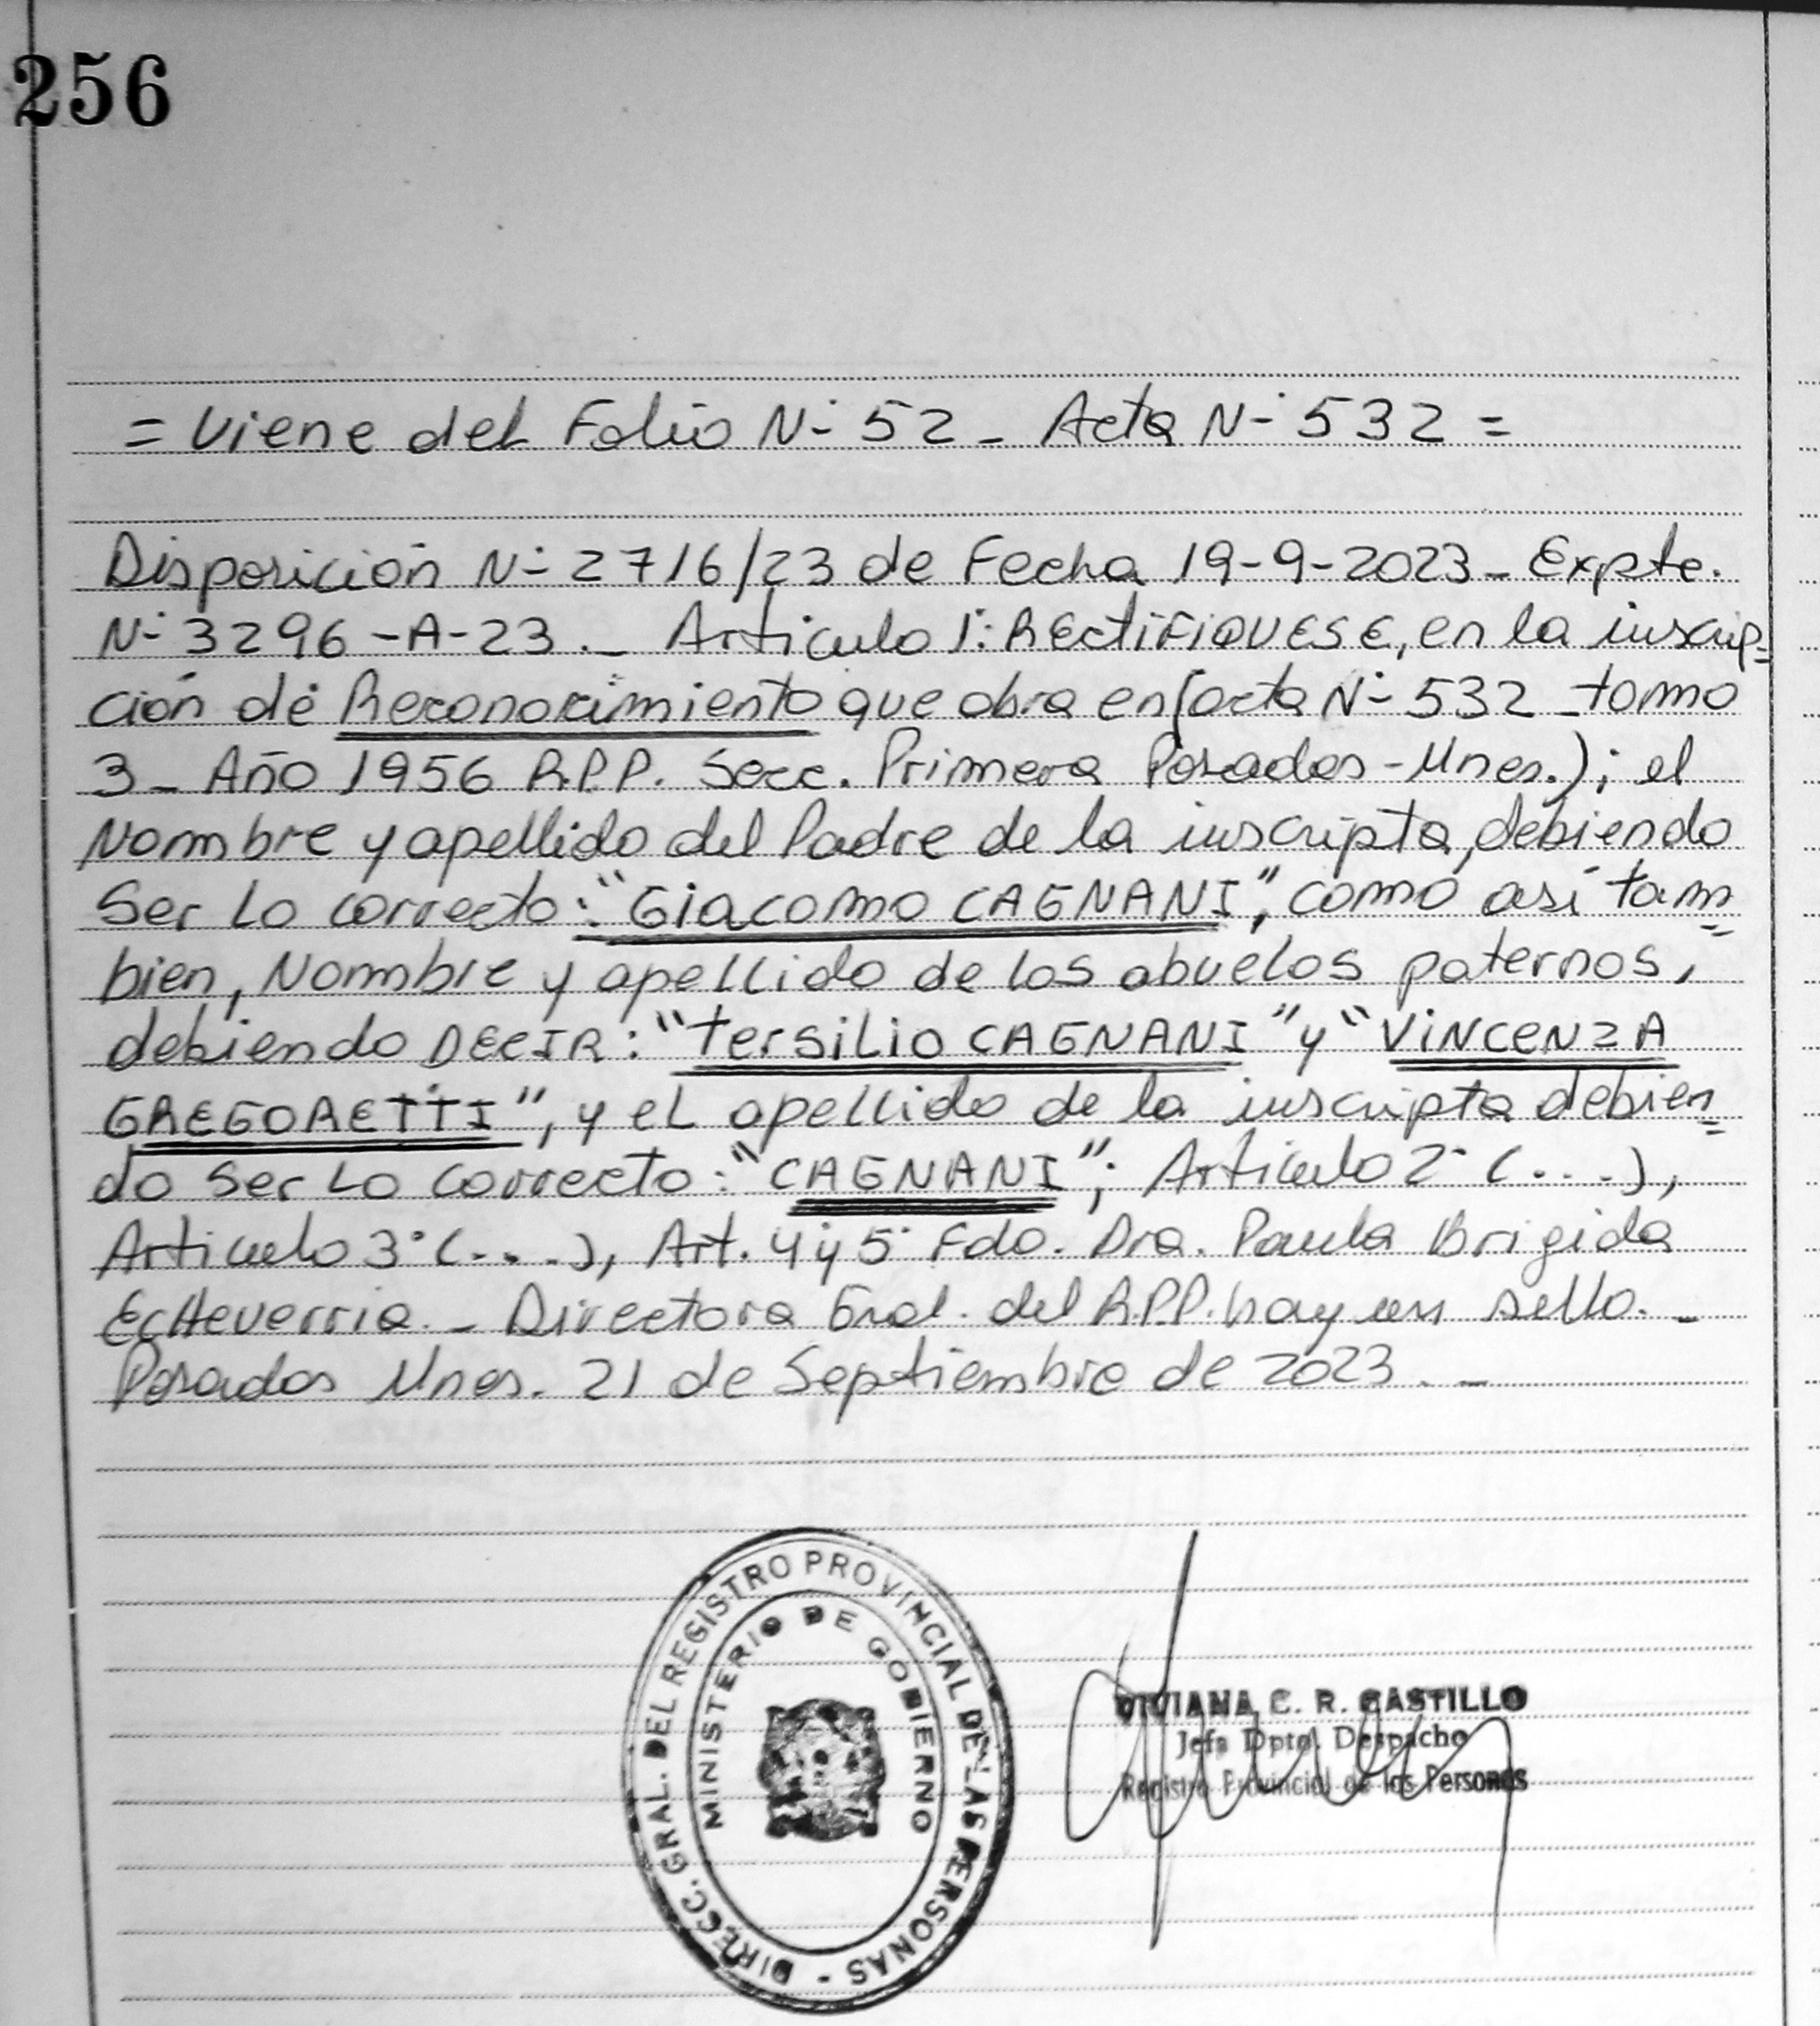 256
= Viene del Folio N- 52 - Acta N- 532 =
Disposición N- 2716/23 de Fecha 19-9-2023 - Expte.
N- 3296-A-23.- Articulo 1: RECTIFIQUESE, en la inscrip=
ción de Reconocimiento que obra en (acta N- 532 - tomo
3 - Año 1956 R.P.P. Secc. Primera Posadas - Mnes.); el
Nombre y apellido del Padre de la inscripta, debiendo
Ser Lo correcto: "Giacomo CAGNANI", como así tam=
bien, Nombre y apellido de los abuelos paternos,
debiendo DECIR: "tersilio CAGNANI" y "VINCENZA
GREGORETTI", y el apellido de la inscripta debien=
do Ser Lo correcto: "CAGNANI"; Articulo 2° (...),
Articulo 3° (...), Art. 4 y 5° Fdo. Dra. Paula Brigida
EcHeverria. - Directora Gral. del R.P.P. hay un sello. -
Posadas Mnes. 21 de Septiembre de 2023. -
DIRECC. GRAL. DEL REGISTRO PROVINCIAL DE LAS PERSONAS -
MINISTERIO DE GOBIERNO
VIVIANA C. R. CASTILLO
Jefa Dpto. Despacho
Registro Provincial de las Personas